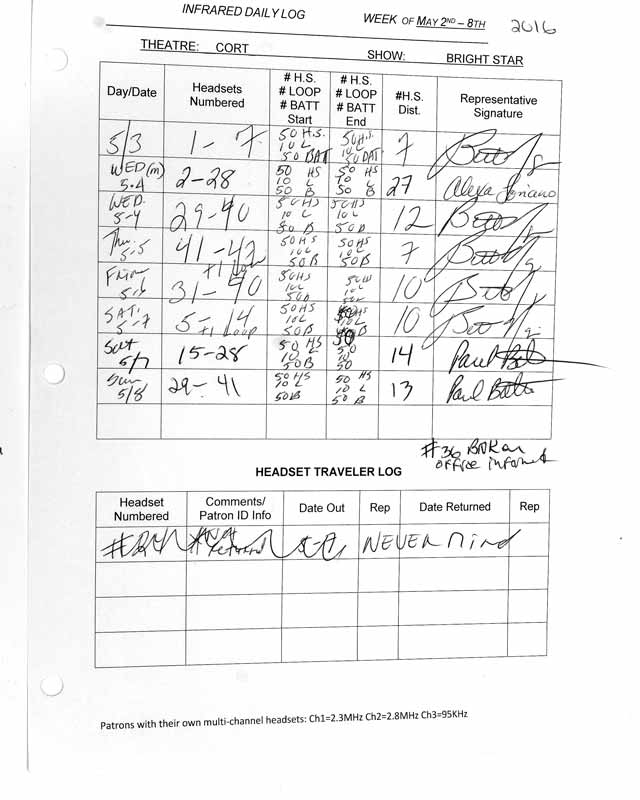 INFRARED DAILY LOG WEEK OF MAY 2ND – 8TH 2016
THEATRE: CORT SHOW: BRIGHT STAR
Day/Date Headsets Numbered # H.S. # LOOP # BATT Start # H.S. # LOOP # BATT End #H.S. Dist. Representative Signature
5/3 1 - 7 50 H.S. 10 L 50 BAT 50 H.S. 10 L 50 BAT 7
WED (m) 5-4 2-28 50 HS 10 L 50 B 50 HS 10 L 50 B 27 Alexa
WED. 5-4 29-40 50 HS 10 L 50 B 50 HS 10 L 50 B 12
Thu 5-5 41-47 +1 loop 50 HS 10 L 50 B 50 HS 10 L 50 B 7
5-6 31-40 50 HS 10 L 50 B 10 L 10
SAT. 5-7 5-14 +1 Loop 50 HS 10 L 50 B 10 L 50 10
Sat 5/7 15-28 50 HS 10 L 50 B 50 10 50 14 Paul
Sun 5/8 29-41 50 HS 10 L 50 B 50 HS 10 L 50 B 13 Paul
#36 Broken
office
HEADSET TRAVELER LOG
Headset Numbered Comments/ Patron ID Info Date Out Rep Date Returned Rep
NEVER MIND
Patrons with their own multi-channel headsets: Ch1=2.3MHz Ch2=2.8MHz Ch3=95KHz